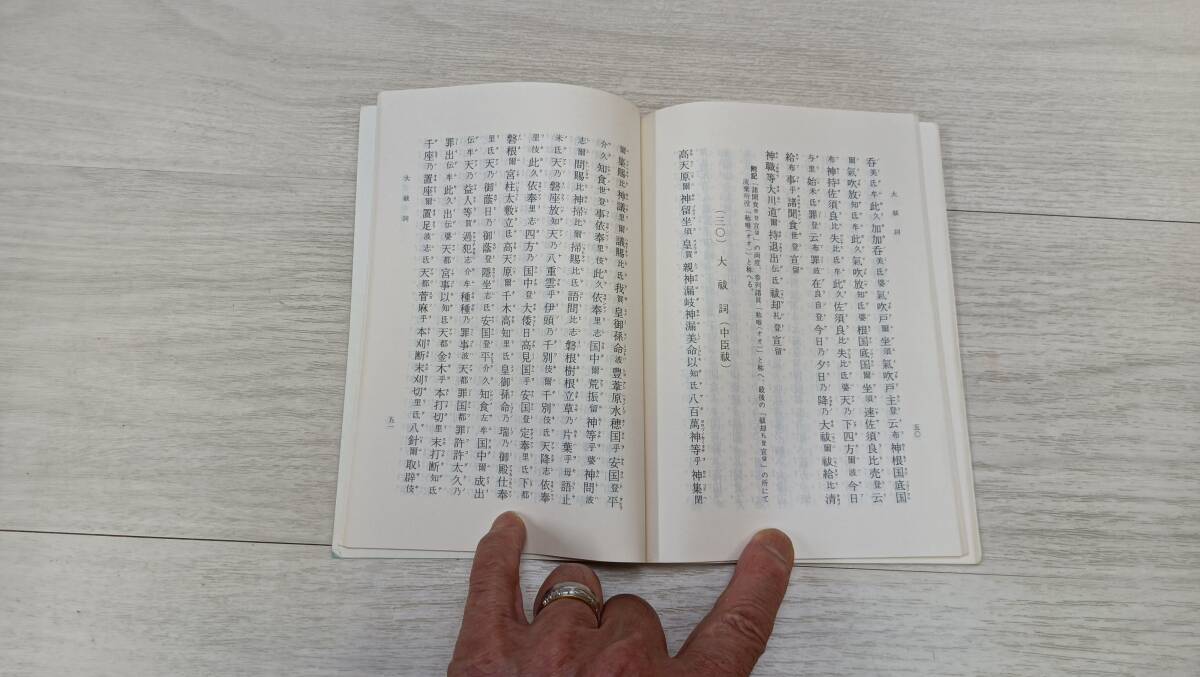 大祓詞
五〇
呑美氐牟此久加加呑美氐婆氣吹戸爾坐須氣吹戸主登云布神根国底国
爾氣吹放知氐牟此久氣吹放知氐婆根国底国爾坐須速佐須良比売登云
布神持佐須良比失比氐牟此久佐須良比失比氐婆天乃下四方爾波今日
与里始米氐罪登云布罪波在良自登今日乃夕日乃降乃大祓爾祓給比清
給布事乎諸聞食世登宣留
神職等大川道爾持退出伝氐祓却礼登宣留
附記
(三〇) 大祓詞(中臣祓)
高天原爾神留坐須皇賀親神漏岐神漏美命以知氐八百萬神等乎神集閇
爾集賜比神議里爾議賜比氐我賀皇御孫命波豊葦原水穂国乎安国登平
介久知食世登事依奉里伎此久依奉里志国中爾荒振留神等乎婆神問波
志爾問賜比神掃比爾掃賜比氐語問比志磐根樹根立草乃片葉乎母語止
米氐天乃磐座放知天乃八重雲乎伊頭乃千別伎爾千別伎氐天降志依奉
里伎此久依奉里志四方乃国中登大倭日高見国乎安国登定奉里氐下都
磐根爾宮柱太敷立氐高天原爾千木高知里氐皇御孫命乃瑞乃御殿仕奉
里氐天乃御蔭日乃御蔭登隠坐志氐安国登平介久知食左牟国中爾成出
伝牟天乃益人等賀過犯志介牟種種乃罪事波天都罪国都罪許許太久乃
罪出伝牟此久出伝婆天都宮事以知氐天都金木乎本打切里末打断知氐
千座乃置座爾置足波志氐天都菅麻乎本刈断末刈切里氐八針爾取辟伎
大祓詞
五一